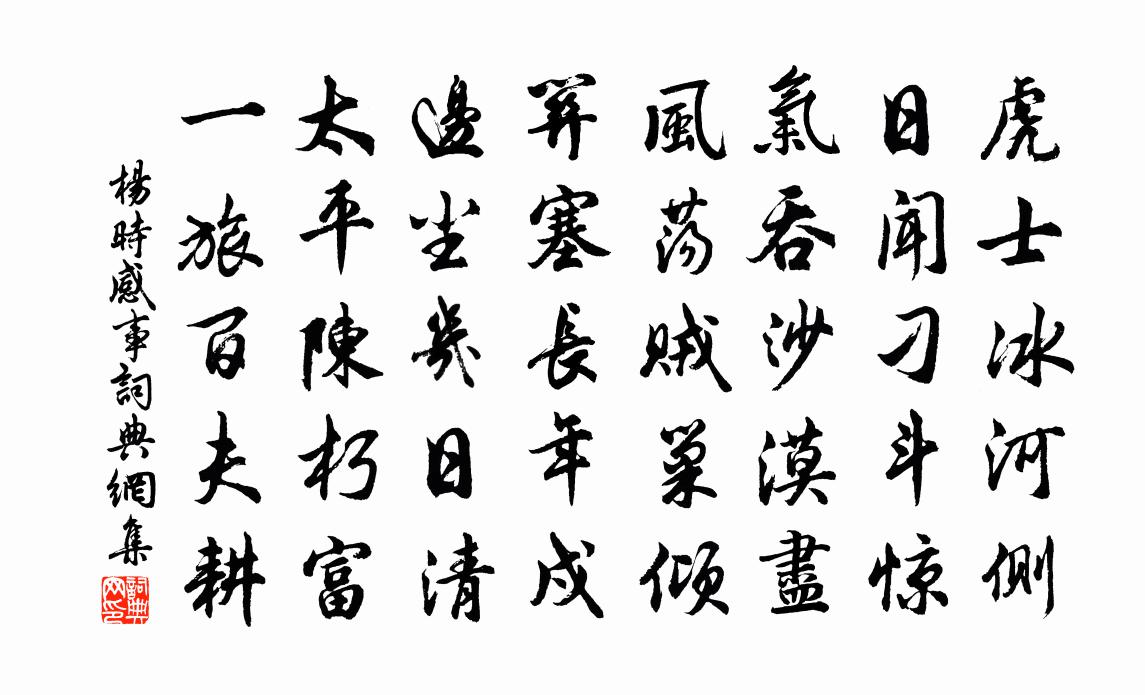 虎士冰河側
日聞刁斗惊
氣吞沙漠盡
風荡賊巢倾
笄塞長年戍
邊尘幾日清
太平陳朽富
一旅百夫耕
楊時感事詞典網集
詞典网印